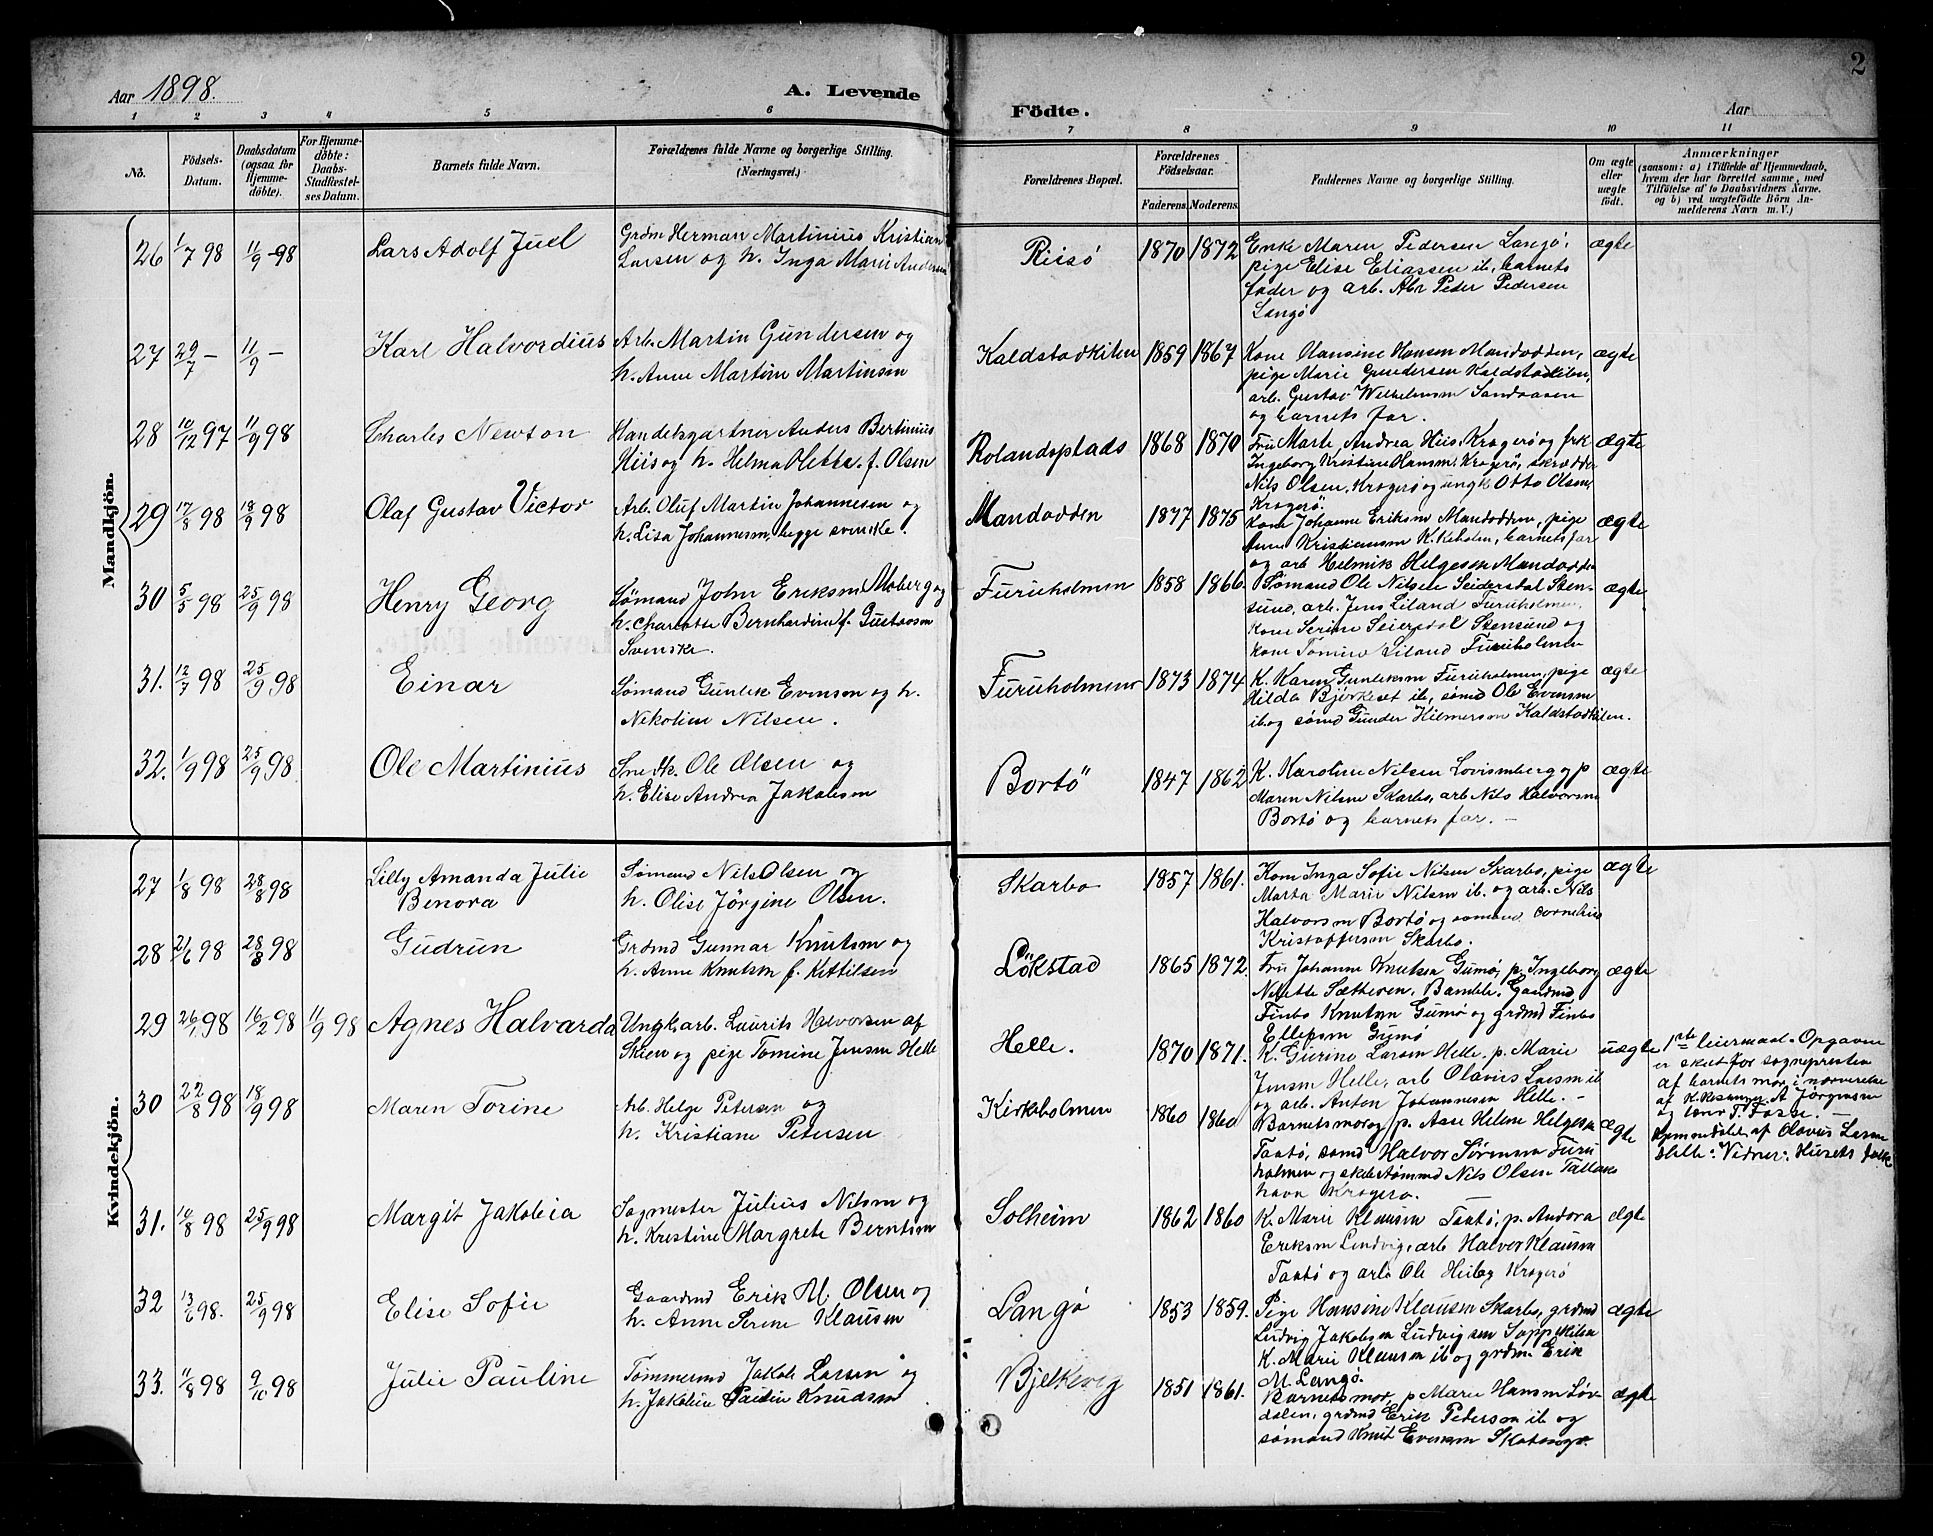 Aar 1898.
A. Levende
Födte.
Aar
2
1 2 3 4 5 6 7 8 9 10 11
No.
Födsels-Datum.
Daabsdatum (ogsaa for Hjemmedöbte).
For Hjemmedöbte: Daabs-Stadfæstelses Datum.
Barnets fulde Navn.
Forældrenes fulde Navne og borgerlige Stilling.
(Næringsvei.)
Forældrenes Bopæl.
Forældrenes Födselsaar.
Faderens. Moderens.
Faddernes Navne og borgerlige Stilling.
Om ægte eller uægte födt.
Anmærkninger
(saasom: a) i Tilfælde af Hjemmedaab,
hvem der har forrettet samme, med
Tilföielse af to Daabsvidners Navne.
og b) ved uægtefödte Börn An-
melderens Navn m. V.)
Mandkjön.
26 1/7 98 11/9 - 98 Lars Adolf Juel
Grdm Herman Martinius Kristian
Larsen og h. Inga Marie Andersen
Rissø 1870 1872
Enke Maren Pedersen Langø,
pige Elise Eliassen ib, barnets
fader og arb. Abr Peder Pedersen
Langø
ægte
27 29/7 - 11/9 - Karl Halvordius
Arb. Martin Gundersen og
h. Anne Martine Martinsen
Kaldstadkilen 1859 1867
Kone Hansine Hansen Mandodden,
pige Marie Gundersen Kaldstadkilen,
arb. Gustav Wilhelmsen Sandaasen
og barnets far.
ægte
28 10/12 97 11/9 98 Charles Newton
Handelsgartner Anders Bertinius
Hiis og h. Helma Olette f. Olsen
Rolandsplads 1868 1870
Fru Marte Andrea Hiis, Kragerø og frk
Ingeborg Kristine Hansen, Kragerø, skrædder
Nils Olsen, Kragerø og ungk Otto Olsen,
Kragerø.
ægte
29 17/8 98 18/9 98 Olaf Gustav Victor
Arb. Oluf Martin Johannesen og
h. Lisa Johannesen, begge svenske.
Mandodden 1877 1875
Kone Johanne Eriksen Mandodden, pige
Anne Kristiansen Kirkeholm, barnets far
og arb Helmik Helgesen Mandodden
ægte
30 5/5 98 25/9 98 Henry Georg
Sømand John Eriksen Moberg og
h. Charlotte Bernhardine f. Gustavsen
Svenske.
Furuholmen 1858 1866
Sømand Ole Nilsen Seiersdal Sten-
sund, arb. Jens Liland Furuholmen,
kone Serine Seiersdal Stensund og
kone Tomine Liland Furuholmen
ægte
31. 12/7 98 25/9 98 Einar
Sømand Gunlek Evensen og h.
Nikoline Nilsen.
Furuholmen 1873 1874
K. Karen Gunleksen Furuholmen, pige
Hilda Bjørkeset ib, sømd Ole Evensen
ib og sømd Gunder Hilmersen Kaldstadkilen.
ægte
32. 1/9 98 25/9 98. Ole Martinius
Snedk. Ole Olsen og
h. Elise Andrea Jakobsen
Bortö 1847 1862
K. Karoline Nilsen Lovisenberg og p
Maren Nilsen Skarbo, arb Nils Halvorsen
Bortø og barnets far. -
ægte
Kvindekjön.
27 1/8 98 28/8 98 Lilly Amanda Julie
Benora
Sømand Nils Olsen og
h. Olise Jörgine Olsen.
Skarbo 1857 1861.
Kone Inga Sofie Nilsen Skarbo, pige
Marta Marie Nilsen ib. og arb. Nils
Halvorsen Bortø og sømand Cornelius
Kristoffersen Skarbo.
ægte
28 21/6 98 28/8 98 Gudrun
Grdmd Gunnar Knutsen og
h. Anne Knutsen f. Kittilsen
Lökstad 1865 1872
Fru Johanne Knutsen Gumø, p. Ingeborg
Nilette Sætheren, Bamble. Gaardmd
Finbo Knutsen Gumø og grdmd Finbo
Ellefsen Gumø
ægte
29 26/1 98 16/2 98 11/9 98 Agnes Halvarda
Ungk. arb. Laurits Halvorsen af
Skien og pige Tomine Jensen Helle
Helle. 1870 1871.
K. Gurine Larsen Helle, p. Marie
Jensen Helle, arb Olavus Larsen ib
og arb. Anton Johannesen Helle. -
uægte
1ste leiermaal. Opgaven
er skeet for sognepresten
af barnets mor i nærværelse
af K. A Jörgensen
og lærer T. Fosse. -
Hjemmedöbt af Olavus Larsen
Helle: Vidner: Husets folk
30 22/8 98 18/9 98 Maren Torine
Arb. Helge Petersen og
h. Kristiane Petersen
Kirkeholmen 1860 1860
Barnets mor og p. Aase Helene Helgesen
Taatø, sømd Halvor Sörensen Furu
holmen og skibstømmd Nils Olsen Tallaks
havn Kragerø.
ægte
31. 10/8 98 25/9 98 Margit Jakobia
Sagmester Julius Nilsen og
h. Kristine Margrete Berntsen
Solheim 1862 1860
K. Marie Klausen Taatø, p. Andora
Eriksen Lindvig, arb Halvor Klausen
Taatø og arb Ole Heiby Kragerø
ægte
32 13/6 98. 25/9 98 Elise Sofie
Gaardmd Erik M. Olsen og
h. Anne Serene Klausen
Langø 1853 1859.
Pige Hansine Klausen Skarbo, grdmd
Ludvig Jakobsen Ludvigsen Soppekilen
K. Marie Klausen ib og grdm. Erik
M. Langø.
ægte
33. 11/8 98 9/10 98 Julie Pauline
Tømmermd Jakob Larsen og
h. Jakobine Pauline Knudsen
Bjelkevig 1851 1861.
Barnets mor, p Marie Hansen Løv-
dalen, grdmd Erik Pedersen ib og
sømand Knut Evensen
ægte